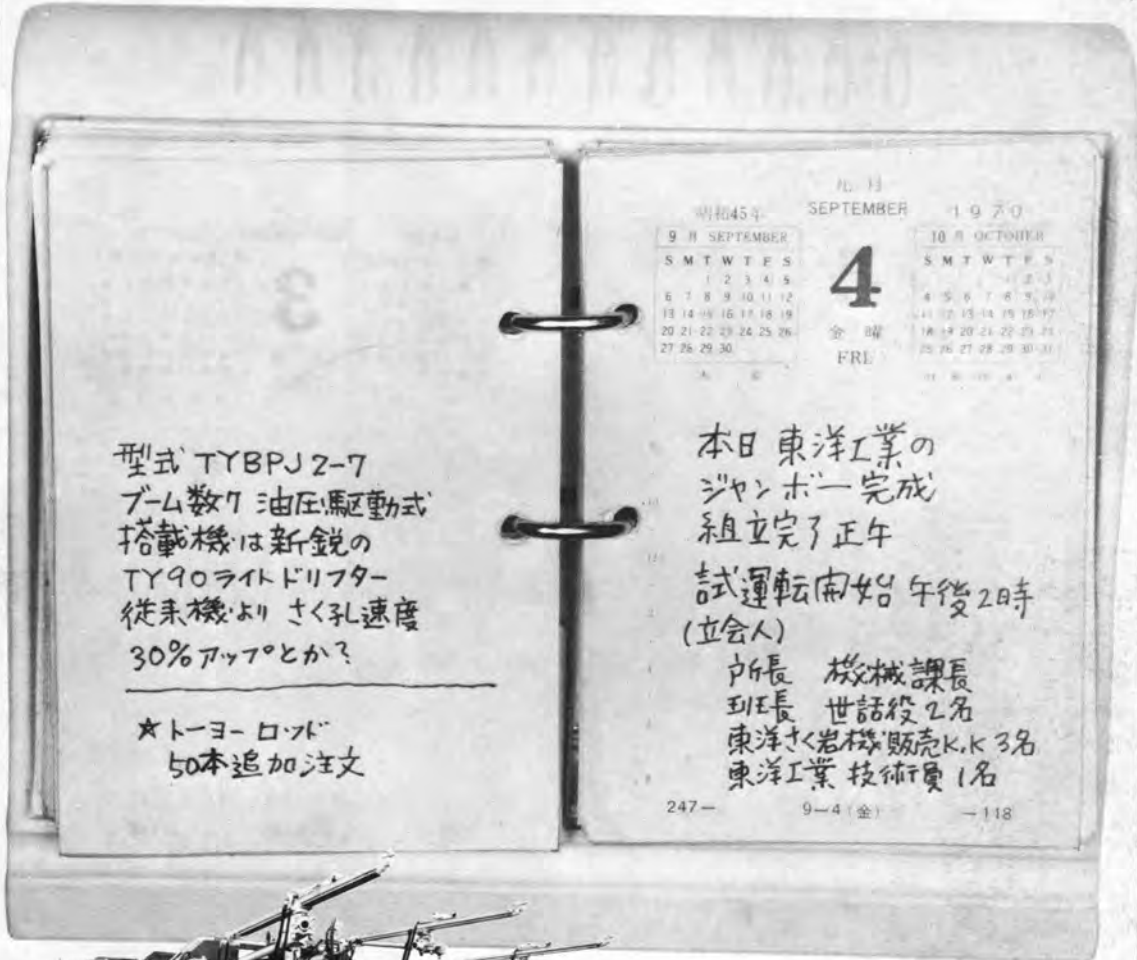 型式 TYBPJ 2-7
ブーム数7 油圧駆動式
搭載機は新鋭の
TY90ライトドリフター
従来機より さく孔速度
30%アップとか?
☆トーヨーロッド
50本追加注文
九月
昭和45年 SEPTEMBER 1970
9月 SEPTEMBER
S M T W T F S
1 2 3 4 5
6 7 8 9 10 11 12
13 14 15 16 17 18 19
20 21 22 23 24 25 26
27 28 29 30
4
金曜
FRI
10月 OCTOBER
S M T W T F S
1 2 3
4 5 6 7 8 9 10
11 12 13 14 15 16 17
18 19 20 21 22 23 24
25 26 27 28 29 30 31
本日 東洋工業の
ジャンボー完成
組立完了正午
試運転開始 午後2時
(立会人)
所長 機械課長
班長 世話役2名
東洋さく岩機販売K.K 3名
東洋工業 技術員1名
247− 9−4(金) −118